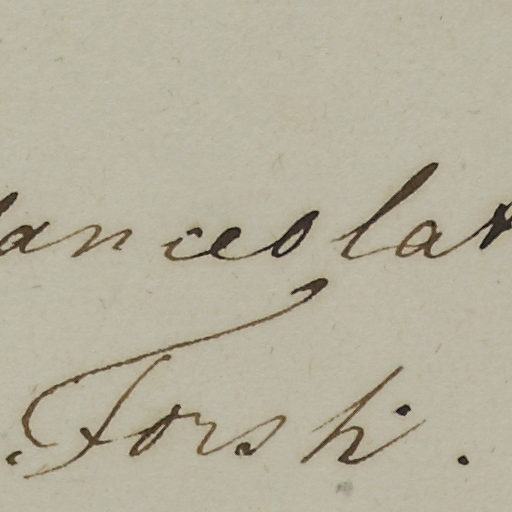 lanceolat
. Forsk.